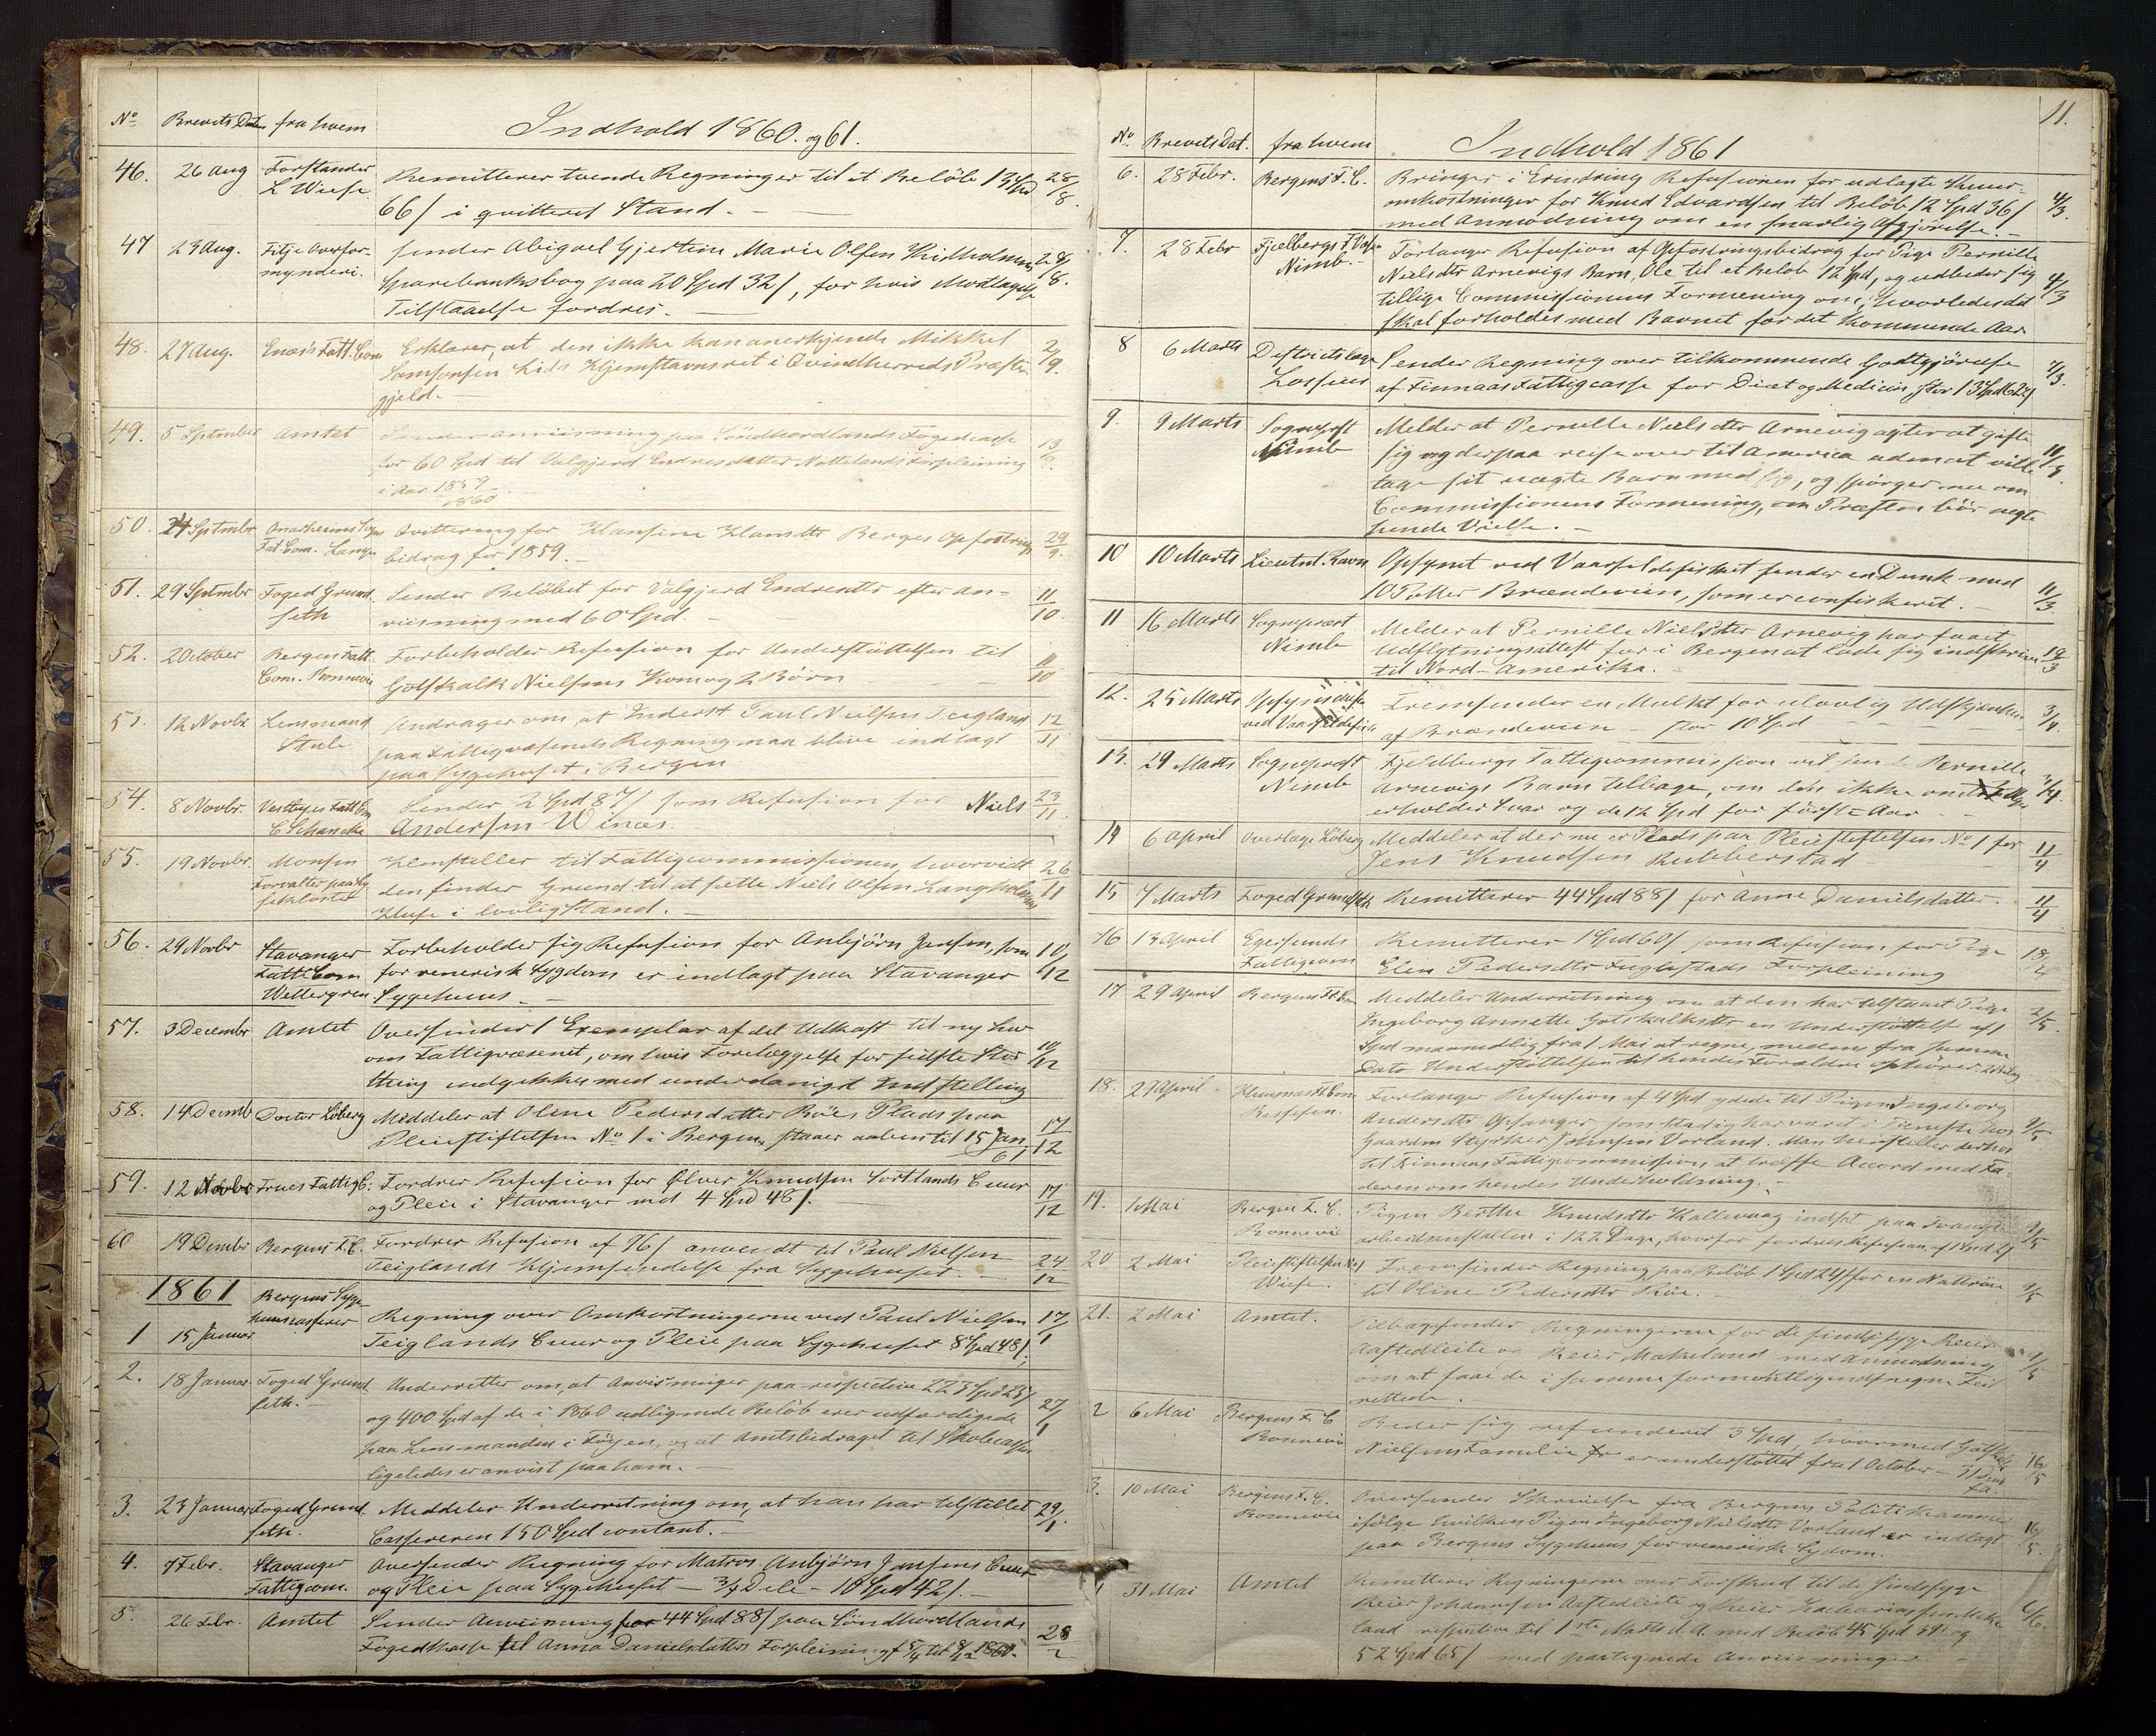 No Brevets Dato fra hvem Indhold 1860. og 61.
46. 26 Aug Forstander L Wiese. Remitterer tvende Regninger til et Beløb 13 Spd 28/8.
66/ i qvitteret Stand. —
47 23 Aug. Fitje Overformynderi. Sender Abigael Gjertine Marie Olsen Kirkholmens 28/8.
Sparebanksbog paa 20 Spd 32/, for hvis Modtagelse
Tilstaaelse fordres. —
48. 27 Aug. Enæs Fatt. Com Erklærer, at den ikke kan anerkjende Mikkel 2/9.
Samsonsen Lids Hjemstavnsret i Qvindherreds Præste-
gjeld. —
49. 5 Septmber Amtet Sender Anviisning paa Søndhordlands Fogedcasse 13/9.
for 60 Spd til Valgjerd Endresdatter Nattelands Forpleining
i Aar 1859
1860
50. 24 Septmbr Onarheims Sogns Fat. Com. Lange Qvittering for Hansine Hansdtr Berges Opfostrings 29/9.
bidrag for 1859. —
51. 29 Septmbr Foged Grundseth Sender Beløbet for Valgjerd Endresdtr efter an- 11/10
viisning med 60 Spd. —
52. 2 October Bergens Fatt. Com. Ronnevie Forbeholder Refusion for Understøttelsen til 11/10
Gotskalk Nielsens Kone og 2 Børn
53. 12 Novbr Lensmand Stub Andrager om at Inderst Paul Nielsen Teigland 12/11
paa Fattigvæsenets Regning maa blive indlagt
paa Sygehuset i Bergen
54. 8 Novbr. C Schancke Sender 2 Spd 87/ som Refusion for Niels 23/11.
Andersen Winæs.
55. 19 Novbr. Monsen Forvalter paa Lysekloster Henstiller til Fattigcommissionen, hvorvidt 26/11
den finder Grund til at sette Niels Olsen Langholmens
Huse i lovlig Stand. —
56. 29 Novbr Stavanger Fatt. Com Wettergren Forbeholder sig Refusion for Anbjørn Jansen, som 10/12
for venerisk Sygdom er indlagt paa Stavanger
Sygehuus. —
57. 3 Decembr Amtet Oversender 1 Exemplar af det Udkast til ny Lov 10/12
om Fattigvæsenet, om hvis Forelæggelse for sidste Stor
thing indgikkes med underdanigst Indstelling
58. 14 Decmb Doctor Løberg Meddeler at Oline Pedersdatter Røes Plads paa 17/12
Pleiestiftelsen No 1 i Bergen, staaer aaben til 15 Jan 61
59. 12 Novbr Fattig C. Fordrer Refusion for Elver Knudsen Sortlands Cuur 17/12
og Pleie i Stavanger med 4 Spd 48/.
60 19 Dembr Bergens F. C. Fordrer Refusion af 76/ anvendt til Paul Nielsen 24/12
Teiglands Hjemsendelse fra Sygehuset. —
1861
1 15 Januar Bergens Sygehuuscasserer Regning over Omkostningerne ved Paul Nielsen 17/1
Teiglands Cuur og Pleie paa Sygehuset 8 Spd 48/.
2. 18 Januar Foged Grundseth. Underretter om, at Anvisninger paa respective 225 Spd 25/ 27/1
og 400 Spd af de i 1860 udlignede Beløb ere udfærdigede
paa Lensmanden i Føien, og at Amtsbidraget til Skolecassen
ligeledes er anvist paa ham. —
3. 23 Januar Foged Grundseth. Meddeler Underretning om, at han har tilstillet 29/1.
Cassereren 150 Spd contant. —
4. 7 Febr. Stavanger Fattigcom. Oversender Regning for Matros Anbjørn Jansens Cuur
og Pleie paa Sygehuset — 3/4 Dele — 10 Spd 42/. —
5. 26 Febr. Amtet Sender Anviisning for 44 Spd 88/ paa Søndhordlands 28/2
Fogedkasse til Anna Danielsdatters Forpleining
11.
No Brevets Dat. fra hvem Indhold 1861
6. 28 Febr. Bergens F. C. Bringer i Erindring Refusionen for udlagte Kuur- 4/3.
omkostninger for Knud Edvardsen til Beløb 12 Spd 36/
med Anmodning om en snarlig Afgjørelse. —
7. 28 Febr Fjelbergs F. Væs Nimb. — Forlanger Refusion af Opfostringsbidrag for Pige Pernille 4/3
Nielsdtr Arnevigs Barn, Ole til et Beløb 12 Spd, og udbeder sig
tillige Commissionens Formening om, hvorledes det
skal forholdes med Barnet for det kommende Aar
8 6 Marts Destrictslæge Lossius Sender Regning over tilkommende Godtgjørelse 7/3.
af Finnaas Fattigcasse for Diæt og Medicin, stor 13 Spd 62/
9. 9 Marts Sogneprst Nimb Melder at Pernille Nielsdtr Arnevig agter at gifte 11/3.
sig og derpaa reise over til America uden at ville
tage sit uægte Barn med sig, og spørger nu om
Commissionens Formening, om Præsten bør negte
hende Vielse. —
10 10 Marts Lieutnt. Ravn Opsynet ved Vaarsildefisket sender en Dunk med 11/3
10 Potter Brændeviin, som er confiskeret. —
11 16 Marts Sognepræst Nimb Melder at Pernille Nielsdtr Arnevig har faaet 19/3
Udflytningsattest for i Bergen at lade sig indskrive
til Nord-Amerika. —
12. 25 Marts ved Vaarsildefisk Fremsender en Mulkt for ulovlig Udskjænkning 3/4.
af Brændeviin — stor 10 Spd —
13. 29 Marts Sogneprst Nimb Fjeldbergs Fattigcommission vil sende Pernille 7/4.
Arnevigs Barn tilbage, om den ikke
erholder Svar og de 12 Spd for første Aar
14 6 April Overlæge Løberg Meddeler at der nu er Plads paa Pleiestiftelsen No 1 for 11/4
Jens Knudsen Rubberstad
15 7 Marts Foged Grundseth Remitterer 44 Spd 88/ for Anne Danielsdatter. 11/4
16 13 April Egersunds Fattigcom Remitterer 1 Spd 60/ som Refusion for Pige 18/4
Elen Pedersdtr Fuglestads Forpleining
17 29 April Bergens Ft. Com Meddeler Underretning om at den har tilstaaet Pige 2/5.
Ingeborg Annette Gotskalksdtr en Understøttelse af 1
Spd maanedlig fra 1 Mai at regne, medens fra samme
Dato Understøttelsen til hendes Forældre ophører.
18. 29 April Ft. Com Forlanger Refusion af 4 Spd ydede til Pigen Ingeborg 9/5
Andersdtr Opsanger, som stadig har været i Tjeneste hos
Gaardm Styrker Johnsen Vorland. Man henstiller derhos
til Finnaas Fattigcommission at træffe Accord med Fa-
deren om hendes Underholdning. —
19. 1 Mai Bergens F. C. Ronnevie Pigen Berthe Knudsdtr Kallevaag indsat paa Tvangs- 9/5
arbeidsanstalten i 122 Dage, hvorfor fordres Refusion af
20 2 Mai Pleiestiftelsen No 1 Wiese. Fremsender Regning paa Beløb 1 Spd 24/ for en Nattrøie 9/5
til Oline Pedersdtr Røe. —
21. 2 Mai Amtet. Tilbagesender Regningerne for de sindssyge Reier 9/5
Aastedleite og Reier Mækeland med Anmodning
om at faae de i samme formentligen Feil
rettede.
2 6 Mai Bergens F. C Ronnevie Beder sig refunderet 3 Spd, hvormed Gotskalk 16/5
Nielsens Familie er understøttet fra 1 October —
3. 10 Mai Bergens F. C. Ronnevie Oversender Skrivelse fra Bergens Politikammer 16/5.
ifølge hvilken Pigen Ingeborg Nielsdtr Vorland er indlagt
paa Bergens Sygehuus for venerisk Sydom.
31 Mai Amtet Remitterer Regningerne over Forskud til de sindssyge 6/6.
Reier Johannesen Aastedleite og Reier Zachariassen Mæke
land respective til 1ste Marts d. A. med Beløb 45 Spd 39/ og
52 Spd 65/ med paategnede Anviisninger —